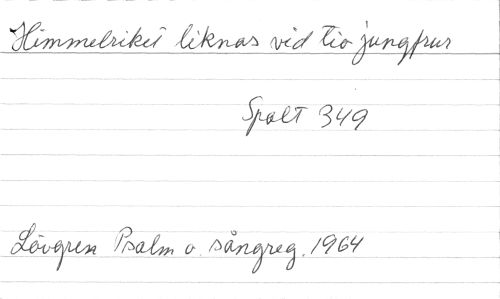 Himmelriket liknas vid tio jungfrur
Spalt 349
Lövgren Psalm o. sångreg. 1964